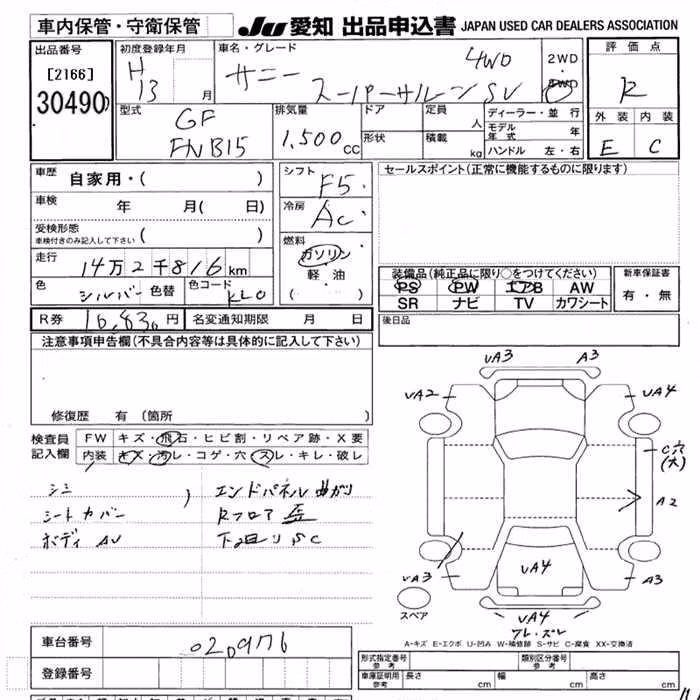 車内保管・守衛保管 JU愛知 出品申込書 JAPAN USED CAR DEALERS ASSOCIATION
出品番号 [2166] 30490
初度登録年月 H13 月
車名・グレード サニー 4WD スーパーサルーン SV
2WD ・ 4WD
評価点 R
外装 内装
E C
型式 GF FNB15
排気量 1,500cc
ドア 形状
定員 人
積載 kg
ディーラー・並行
モデル年式 年
ハンドル 左・右
車歴 自家用・( )
車検 年 月( 日)
受検形態 車検付きのみ記入して下さい ( )
走行 14万2千816km
色 シルバー 色替 色コード KL0
シフト F5
冷房 AC
燃料 ガソリン 軽油 ( )
セールスポイント(正常に機能するものに限ります)
装備品(純正品に限り○をつけてください)
PS PW エアB AW
SR ナビ TV カワシート
新車保証書 有・無
R券 円 名変通知期限 月 日
後日品
注意事項申告欄(不具合内容等は具体的に記入して下さい)
修復歴 有(箇所 )
検査員記入欄
FW キズ・飛石・ヒビ割・リペア跡・X要
内装 キズ・汚レ・コゲ・穴・スレ・キレ・破レ
シミ エンドパネル曲がり
シートカバー Rフロア歪
ボディ AU 下回り SC
UA3 A3
UA2 UA4
C穴(大)
A2
UA3 UA4 A3
スペア
UA4
ワレ・ズレ
A-キズ E-エクボ U-凹み W-補修跡 S-サビ C-腐食 XX-交換済
車台番号 020976
登録番号
形式指定番号 参考 類別区分番号 参考
車庫証明用 参考 長さ cm 幅 cm 高さ cm